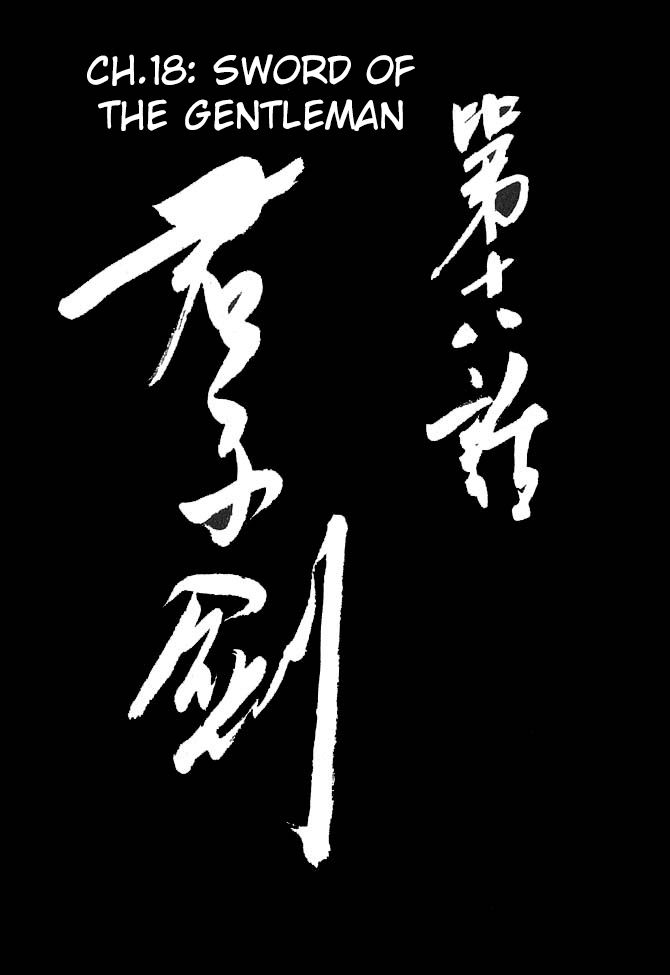 CH.18: SWORD OF
THE GENTLEMAN
第十八話
君子剣